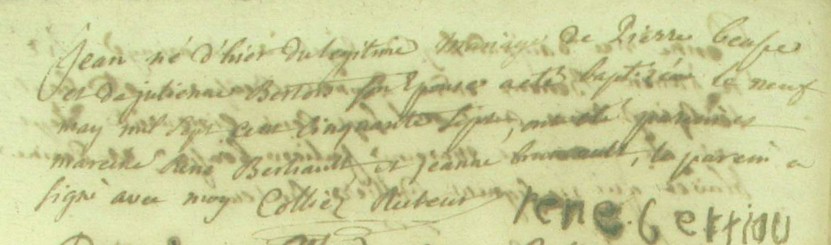 Jean né d'hier du legitime mariage de Pierre
et de julienne son Epouse a eté baptizé le neuf
may mil Sept cent cinquante Sept, ont eté parain et
mareine René et jeanne le parein a
signé avec moy Recteur
rene